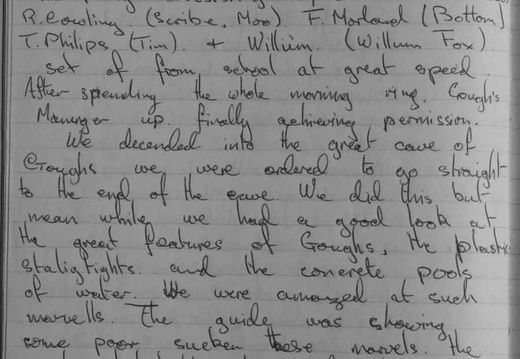 R. Cowling. (Scribe, Moo) F. Morland (Bottom)
T. Philips (Tim). + William. (Willum Fox)
set of from school at great speed.
After spending the whole morning ring. Cough's
Manager up. finally achieving permission.
We decended into the great cave of
Goughs we were ordered to go straight
to the end of the cave. We did this but
mean while we had a good look at
the great features of Goughs, the plastic
staligtights and the concrete pools
of water. We were amazed at such
marvells. The guide was showing
some poor sucken these marvels. the